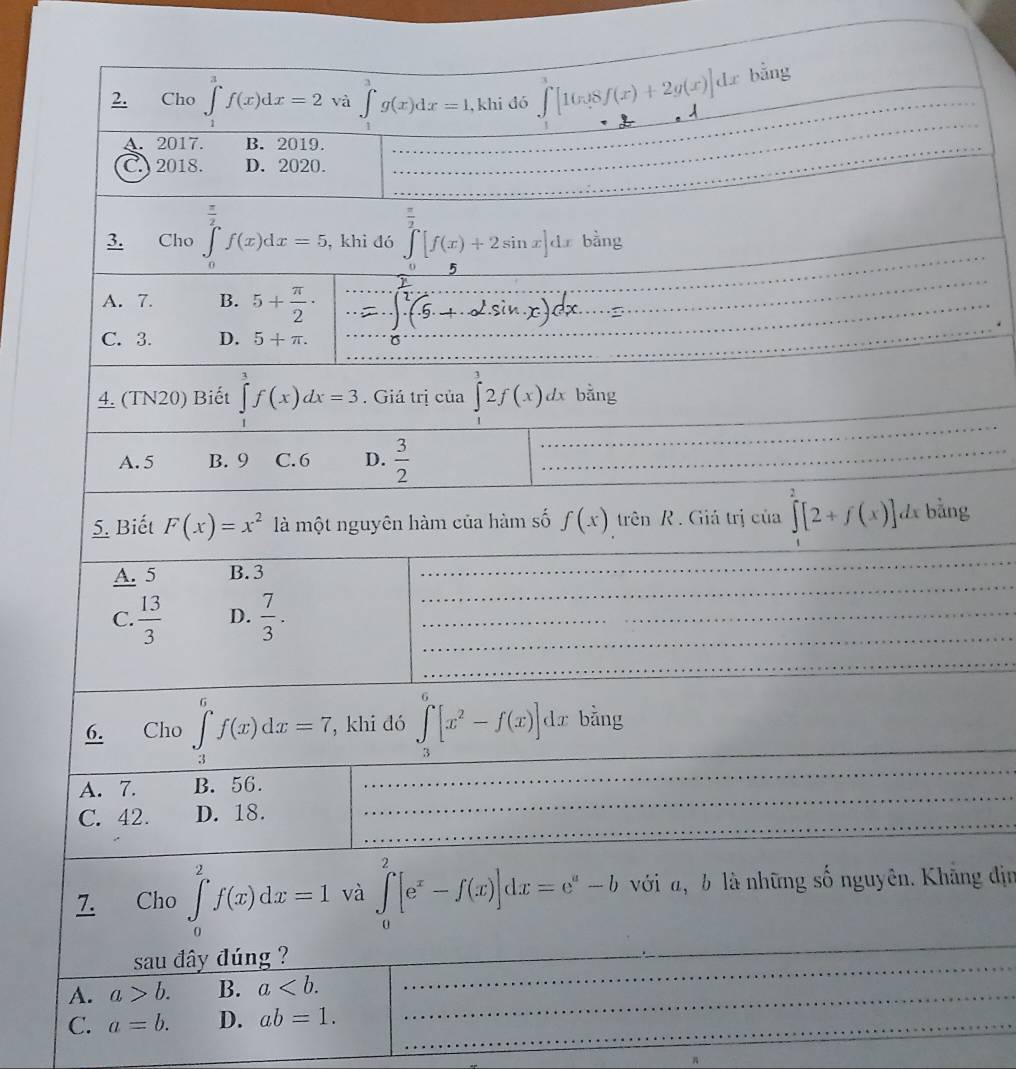 2. Cho ∫₁³ f(x)dx = 2 và ∫₁³ g(x)dx = 1, khi đó ∫₁³ [1008f(x) + 2g(x)]dx bằng
. 2 . 1
A. 2017. B. 2019.
C. 2018. D. 2020.
3. Cho ∫₀^(π/2) f(x)dx = 5, khi đó ∫₀^(π/2) [f(x) + 2 sin x]dx bằng
5
A. 7. B. 5 + π/2.
= ∫ (5 + 2 sin x) dx =
C. 3. D. 5 + π.
4. (TN20) Biết ∫₁³ f(x)dx = 3. Giá trị của ∫₁³ 2f(x)dx bằng
A. 5 B. 9 C. 6 D. 3/2
5. Biết F(x) = x² là một nguyên hàm của hàm số f(x) trên R. Giá trị của ∫₁² [2 + f(x)]dx bằng
A. 5 B. 3
C. 13/3 D. 7/3.
6. Cho ∫₃⁶ f(x)dx = 7, khi đó ∫₃⁶ [x² − f(x)]dx bằng
A. 7. B. 56.
C. 42. D. 18.
7. Cho ∫₀² f(x)dx = 1 và ∫₀² [eˣ − f(x)]dx = eᵃ − b với a, b là những số nguyên. Khẳng địn
sau đây đúng ?
A. a > b. B. a < b.
C. a = b. D. ab = 1.